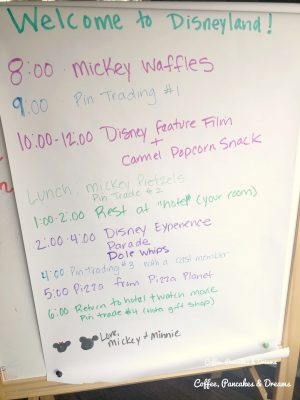 Welcome to Disneyland!
8:00 Mickey Waffles
9:00 Pin Trading #1
10:00-12:00 Disney Feature Film
+
Carmel Popcorn Snack
Lunch: Mickey Pretzels
Pin Trade #2
1:00-2:00 Rest at "hotel" (your room)
2:00-4:00 Disney Experience
Parade
Dole Whips
4:00 Pin Trading #3 with a cast member
5:00 Pizza from Pizza Planet
6:00 Return to hotel + watch movie
Pin trade #4 (hotel gift shop)
Love,
Mickey + Minnie
Coffee, Pancakes & Dreams
Coffee, Pancakes & Dreams